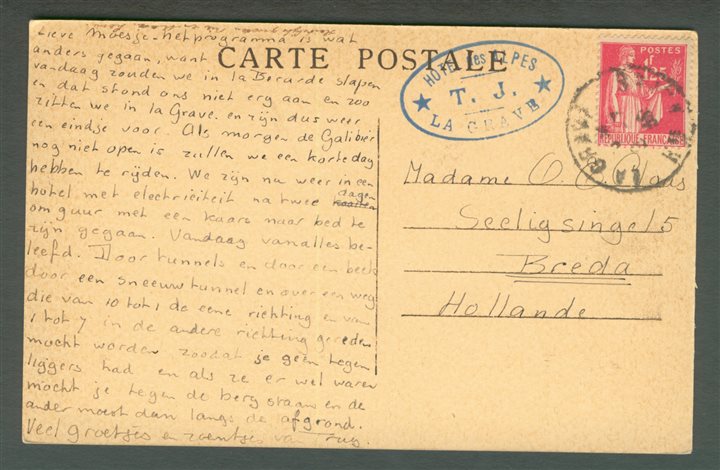 Lieve Moesje. Het programma is wat
anders gegaan, want
vandaag zouden we in la Berarde slapen
en dat stond ons niet erg aan en zoo
zitten we in la Grave en zijn dus weer
een eindje voor. Als morgen de Galibier
nog niet open is zullen we een korte dag
hebben te rijden. We zijn nu weer in een
hotel met electriciteit na twee dagen
om guur met een kaars naar bed te
zijn gegaan. Vandaag van alles be-
leefd. Door tunnels en door een beek
door een sneeuwtunnel en over een weg
die van 10 tot 1 de eene richting en van
1 tot 7 in de andere richting gereden
mocht worden zoodat je geen tegen
liggers had en als ze er wel waren
mocht je tegen de berg staan en de
ander moest dan langs de afgrond.
Veel groetjes en zoentjes van
CARTE POSTALE
HOTEL des ALPES
T. J.
LA GRAVE
POSTES
1F25
REPUBLIQUE FRANÇAISE
LA GRAVE
Madame O.
Seeligsingel 5
Breda
Hollande